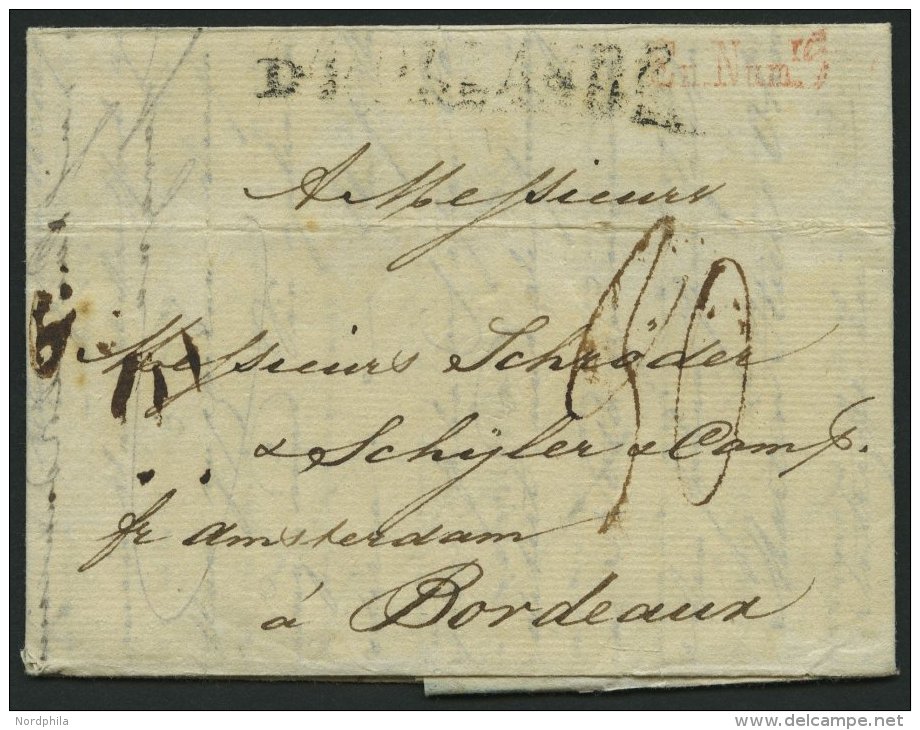 En Num.re
A Messieurs
Messieurs Schröder
& Schÿler & Comp.
fr amsterdam
à Bordeaux
Nordphila
www.delcampe.net